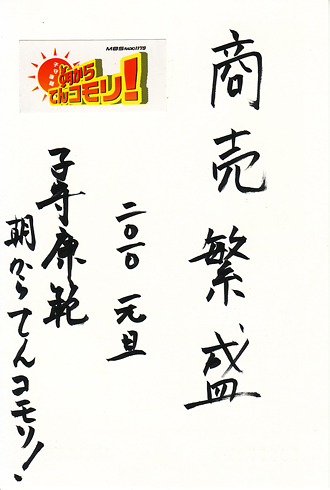 商売繁盛
二〇一〇 元旦
子守康範
朝からてんコモリ!
MBSラジオ1179
朝から
てんコモリ!